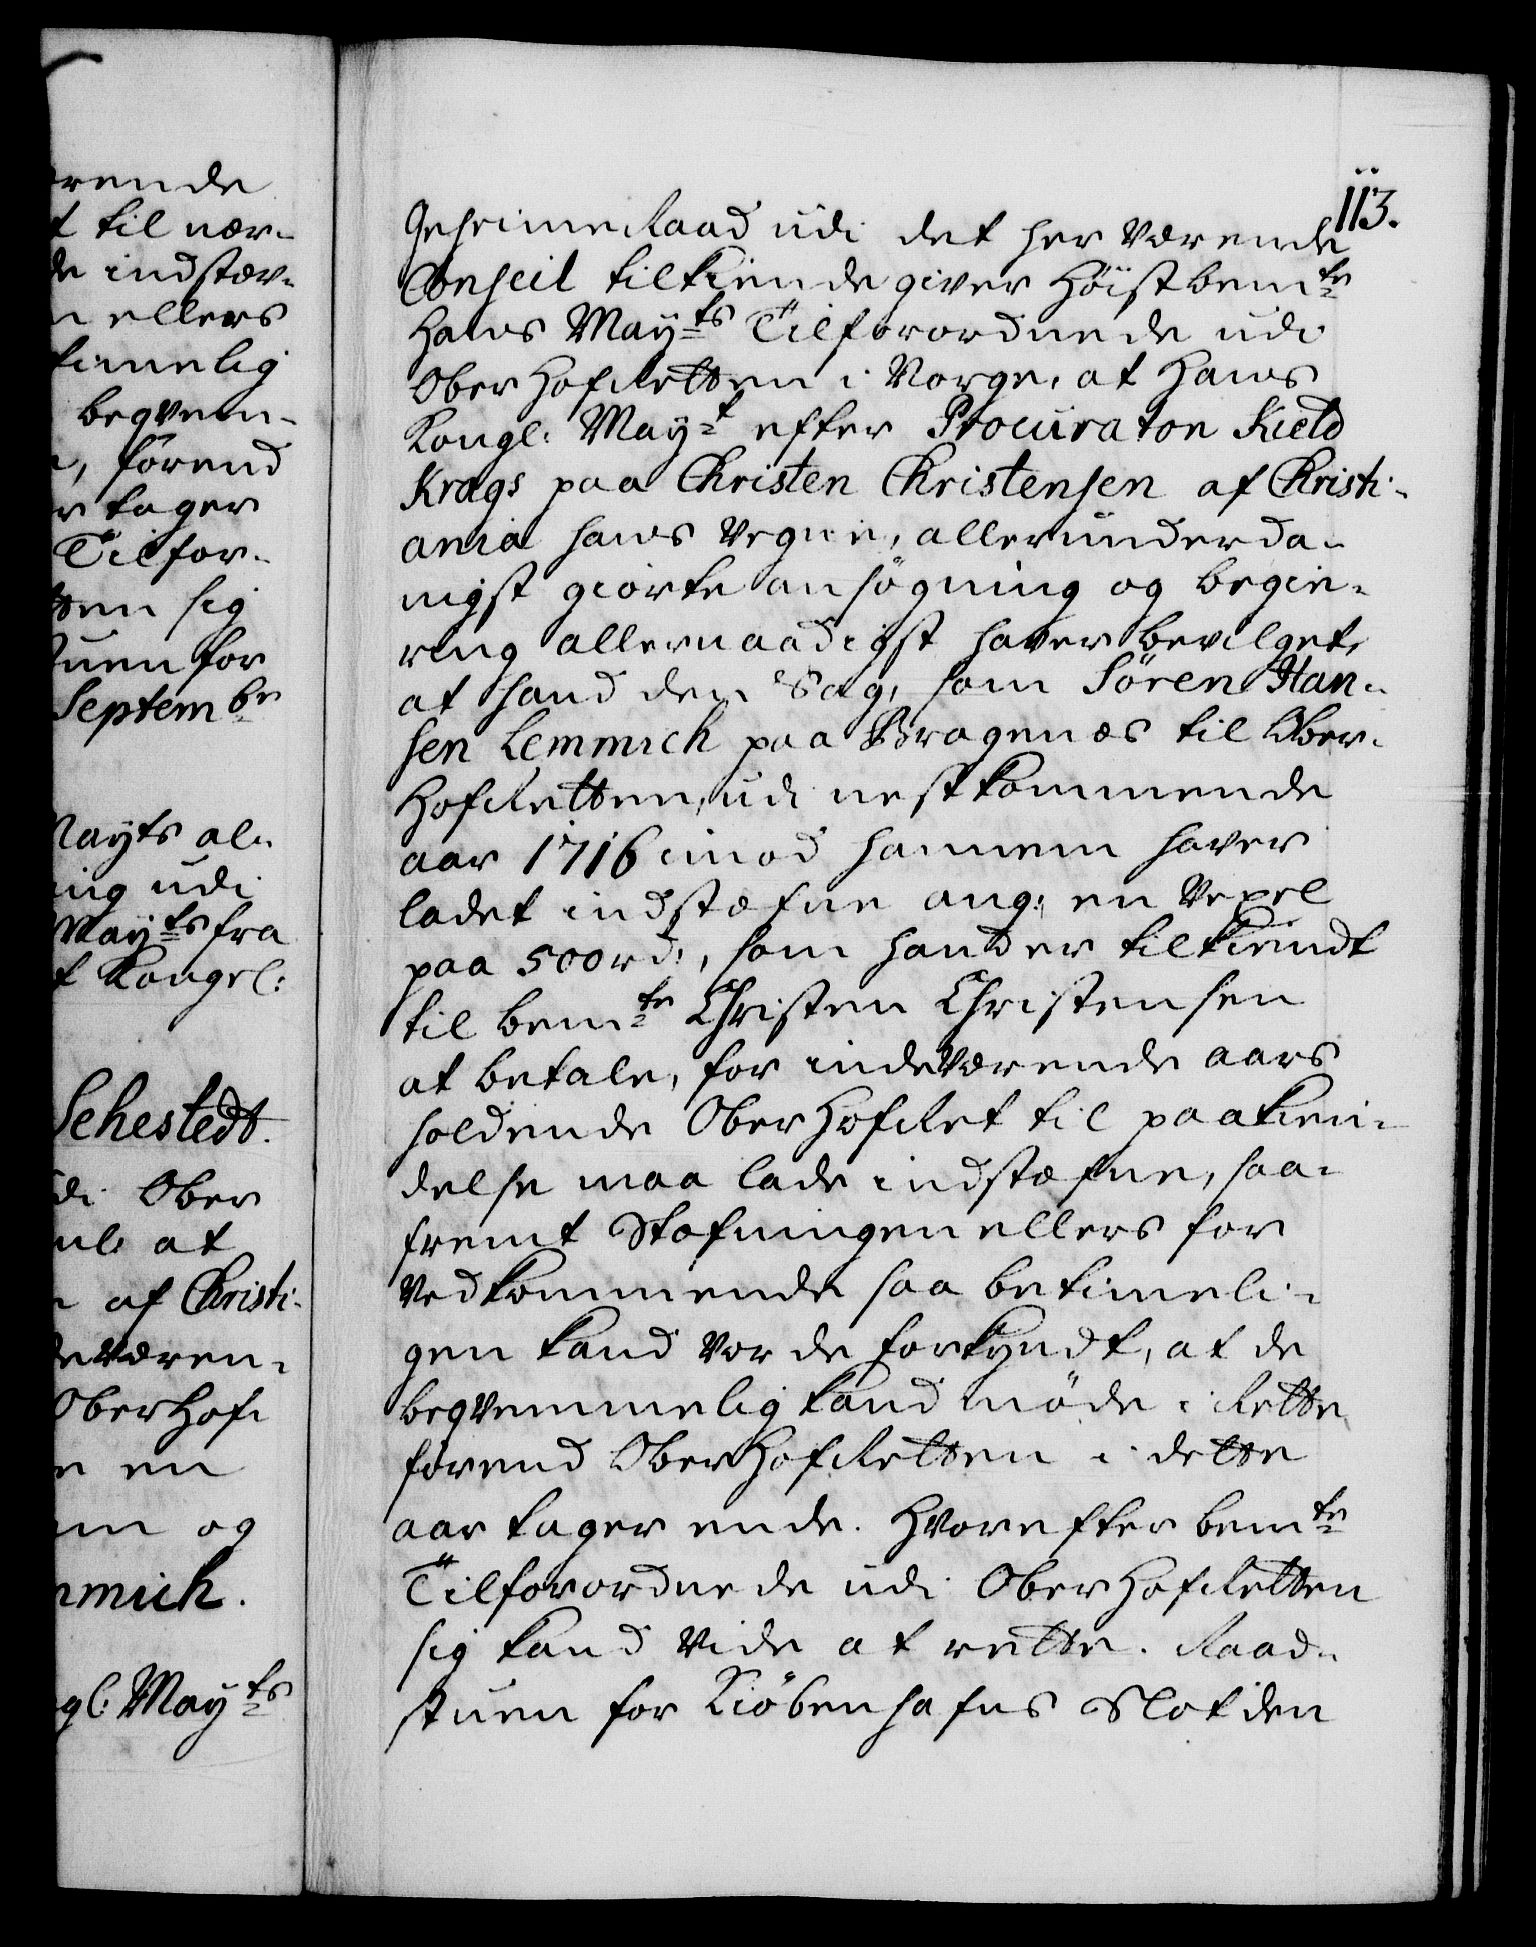 rende
t til nær-
de indstæv-
n ellers
timelig
begvem-
, förend
r tager
Tilfor-
tten sig
tuen for
Septembr
Mayts al-
ing udi
Mayts fra
t Kongel:
Sehestedt.
di Ober
ul: at
af Christi-
deværen-
OberHof-
e en
og
mmich.
gl: Mayts
113.
GeheimeRaad udi det her værende
Conseil tilkiende giver Höistbemte
Hans Mayts Tilforordnede udi
OberHofRetten i Norge, at Hans
Kongl: Mayt efter Procurator Kield
Krags paa Christen Christensen af Christi-
ania hans Vegne, allerunderda-
nigst giorte ansögning og begie-
ring allernaadigst haver bevilget,
at hand den Sag, som Sören Han-
sen Lemmich paa Bragenæs til Ober-
HofRetten, udi nestkommende
aar 1716 imod hannem haver
ladet indstæfne ang: en Vexel
paa 500 rd:, som hand er tilkiendt
til bemte Christen Christensen
at betale, for indeværende aars
holdende OberHofRet til paakien-
delse maa lade indstæfne, saa-
fremt Stæfningen ellers for
Vedkommende saa betimeli-
gen kand vorde forkyndt, at de
begvemmelig kand möde i Rette,
förend OberHofRetten i dette
aar tager ende. Hvorefter bemte
Tilforordnede udi OberHofRetten
sig kand vide at rette. Raad-
stuen for Kiöbenhafns Slot den